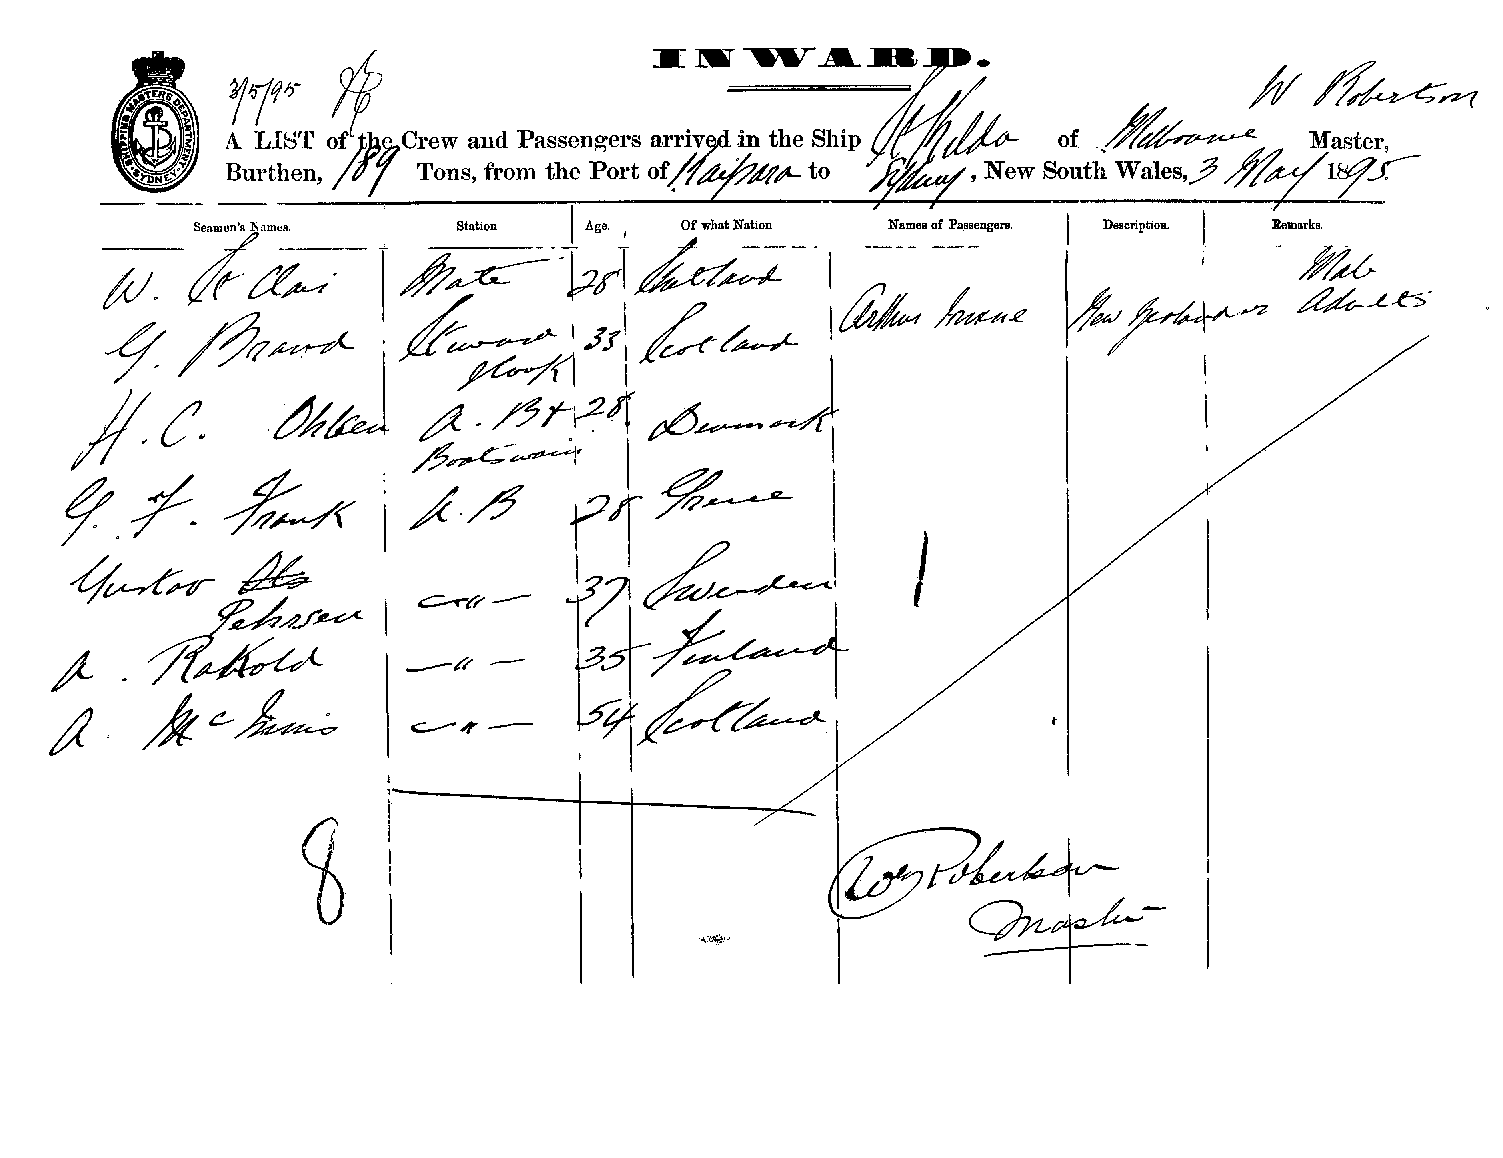 INWARD.
3/5/95
W Robertson
A LIST of the Crew and Passengers arrived in the Ship St Kilda of Melbourne Master,
Burthen, 189 Tons, from the Port of Kaipara to Sydney, New South Wales, 3 May 1895.
SHIPPING MASTERS DEPARTMENT SYDNEY
Seamen's Names. Station Age. Of what Nation Names of Passengers. Description. Remarks.
W. St Clair Mate 28 Shetland
Arthur New Zealander Male Adults
G. Brand Steward & Cook 33 Scotland
H. C. Ohlsen A. B & Boatswain 28 Denmark
G. F. Frank A. B 28 Greece
Gustav Pehrsen —"— 37 Sweenden
A. —"— 35 Finland
A. McInnis —"— 54 Scotland
1
8
Wm Robertson
Master